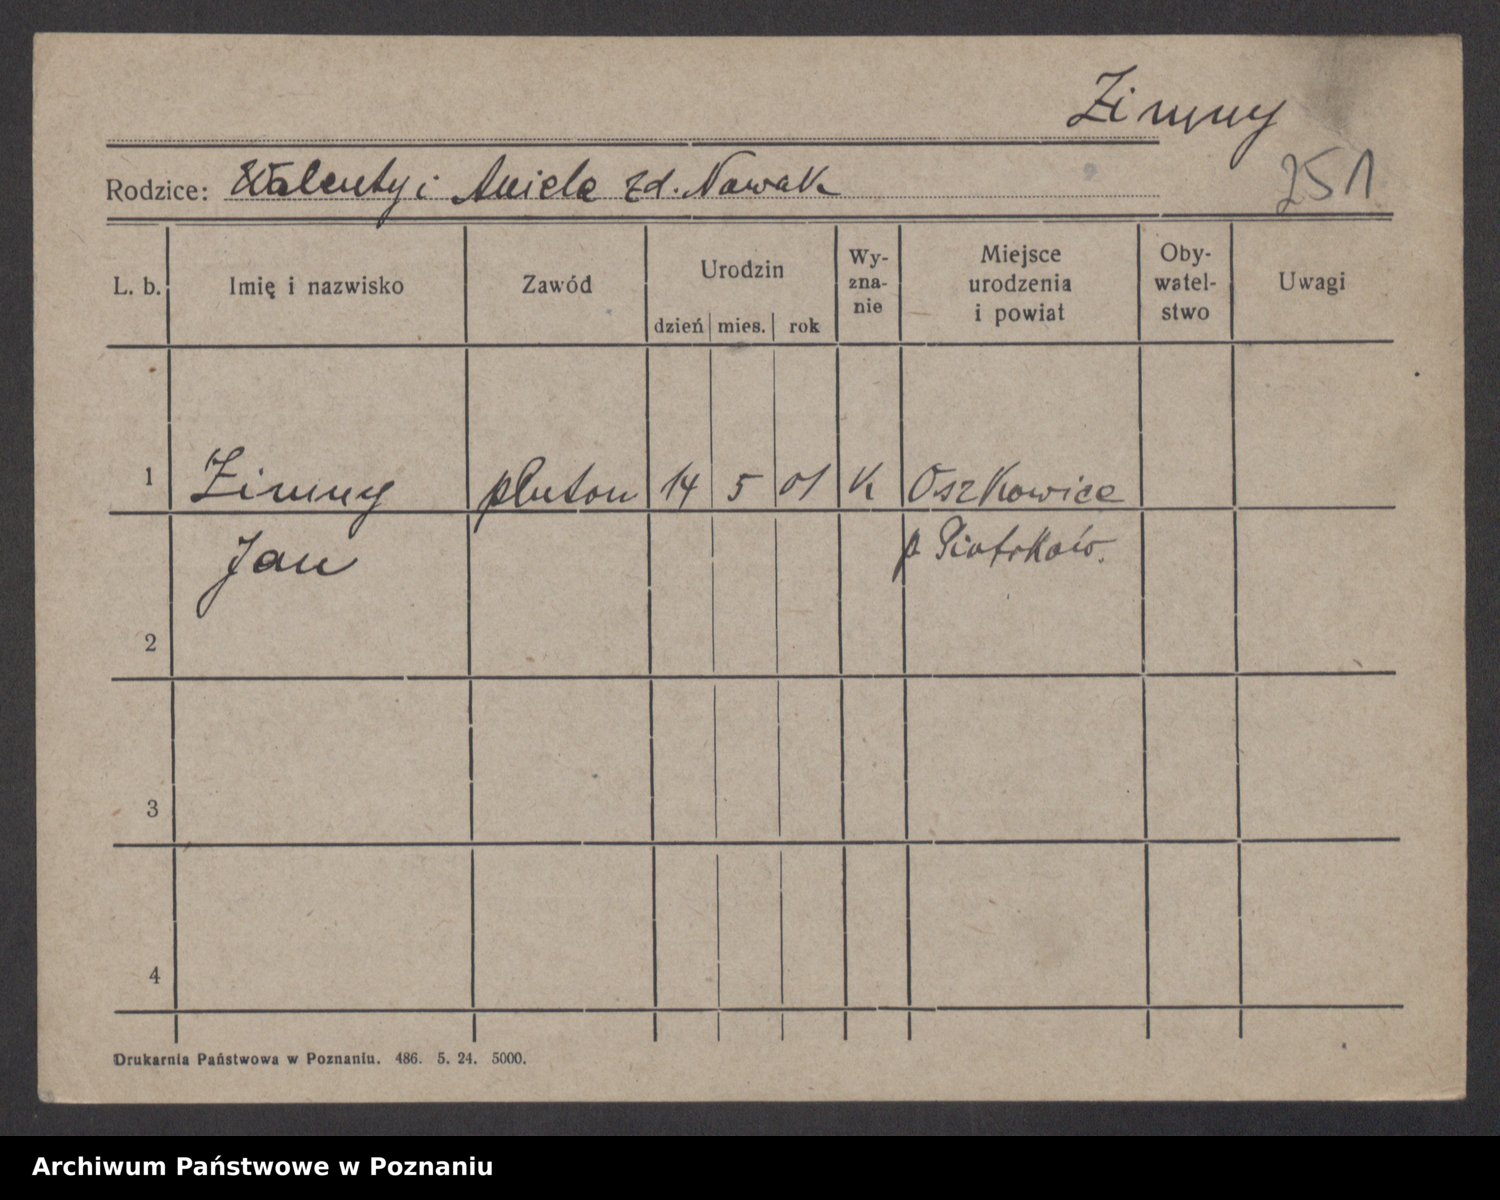 Zimny
251
Rodzice: Walenty i Aniela zd. Nowak
L. b. Imię i nazwisko Zawód Urodzin dzień mies. rok Wy-zna-nie Miejsce urodzenia i powiat Oby-watel-stwo Uwagi
1 Zimny pluton 14 5 01 K Oszkowice
Jan p Piotrków.
2
3
4
Drukarnia Państwowa w Poznaniu. 486. 5. 24. 5000.
Archiwum Państwowe w Poznaniu